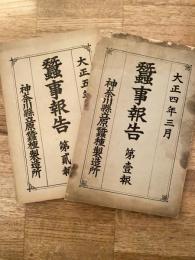 大正四年三月
蠶事報告
第壹報
神奈川縣原蠶種製造所
大正五
蠶事報告
第貳報
神奈川縣原蠶種製造所